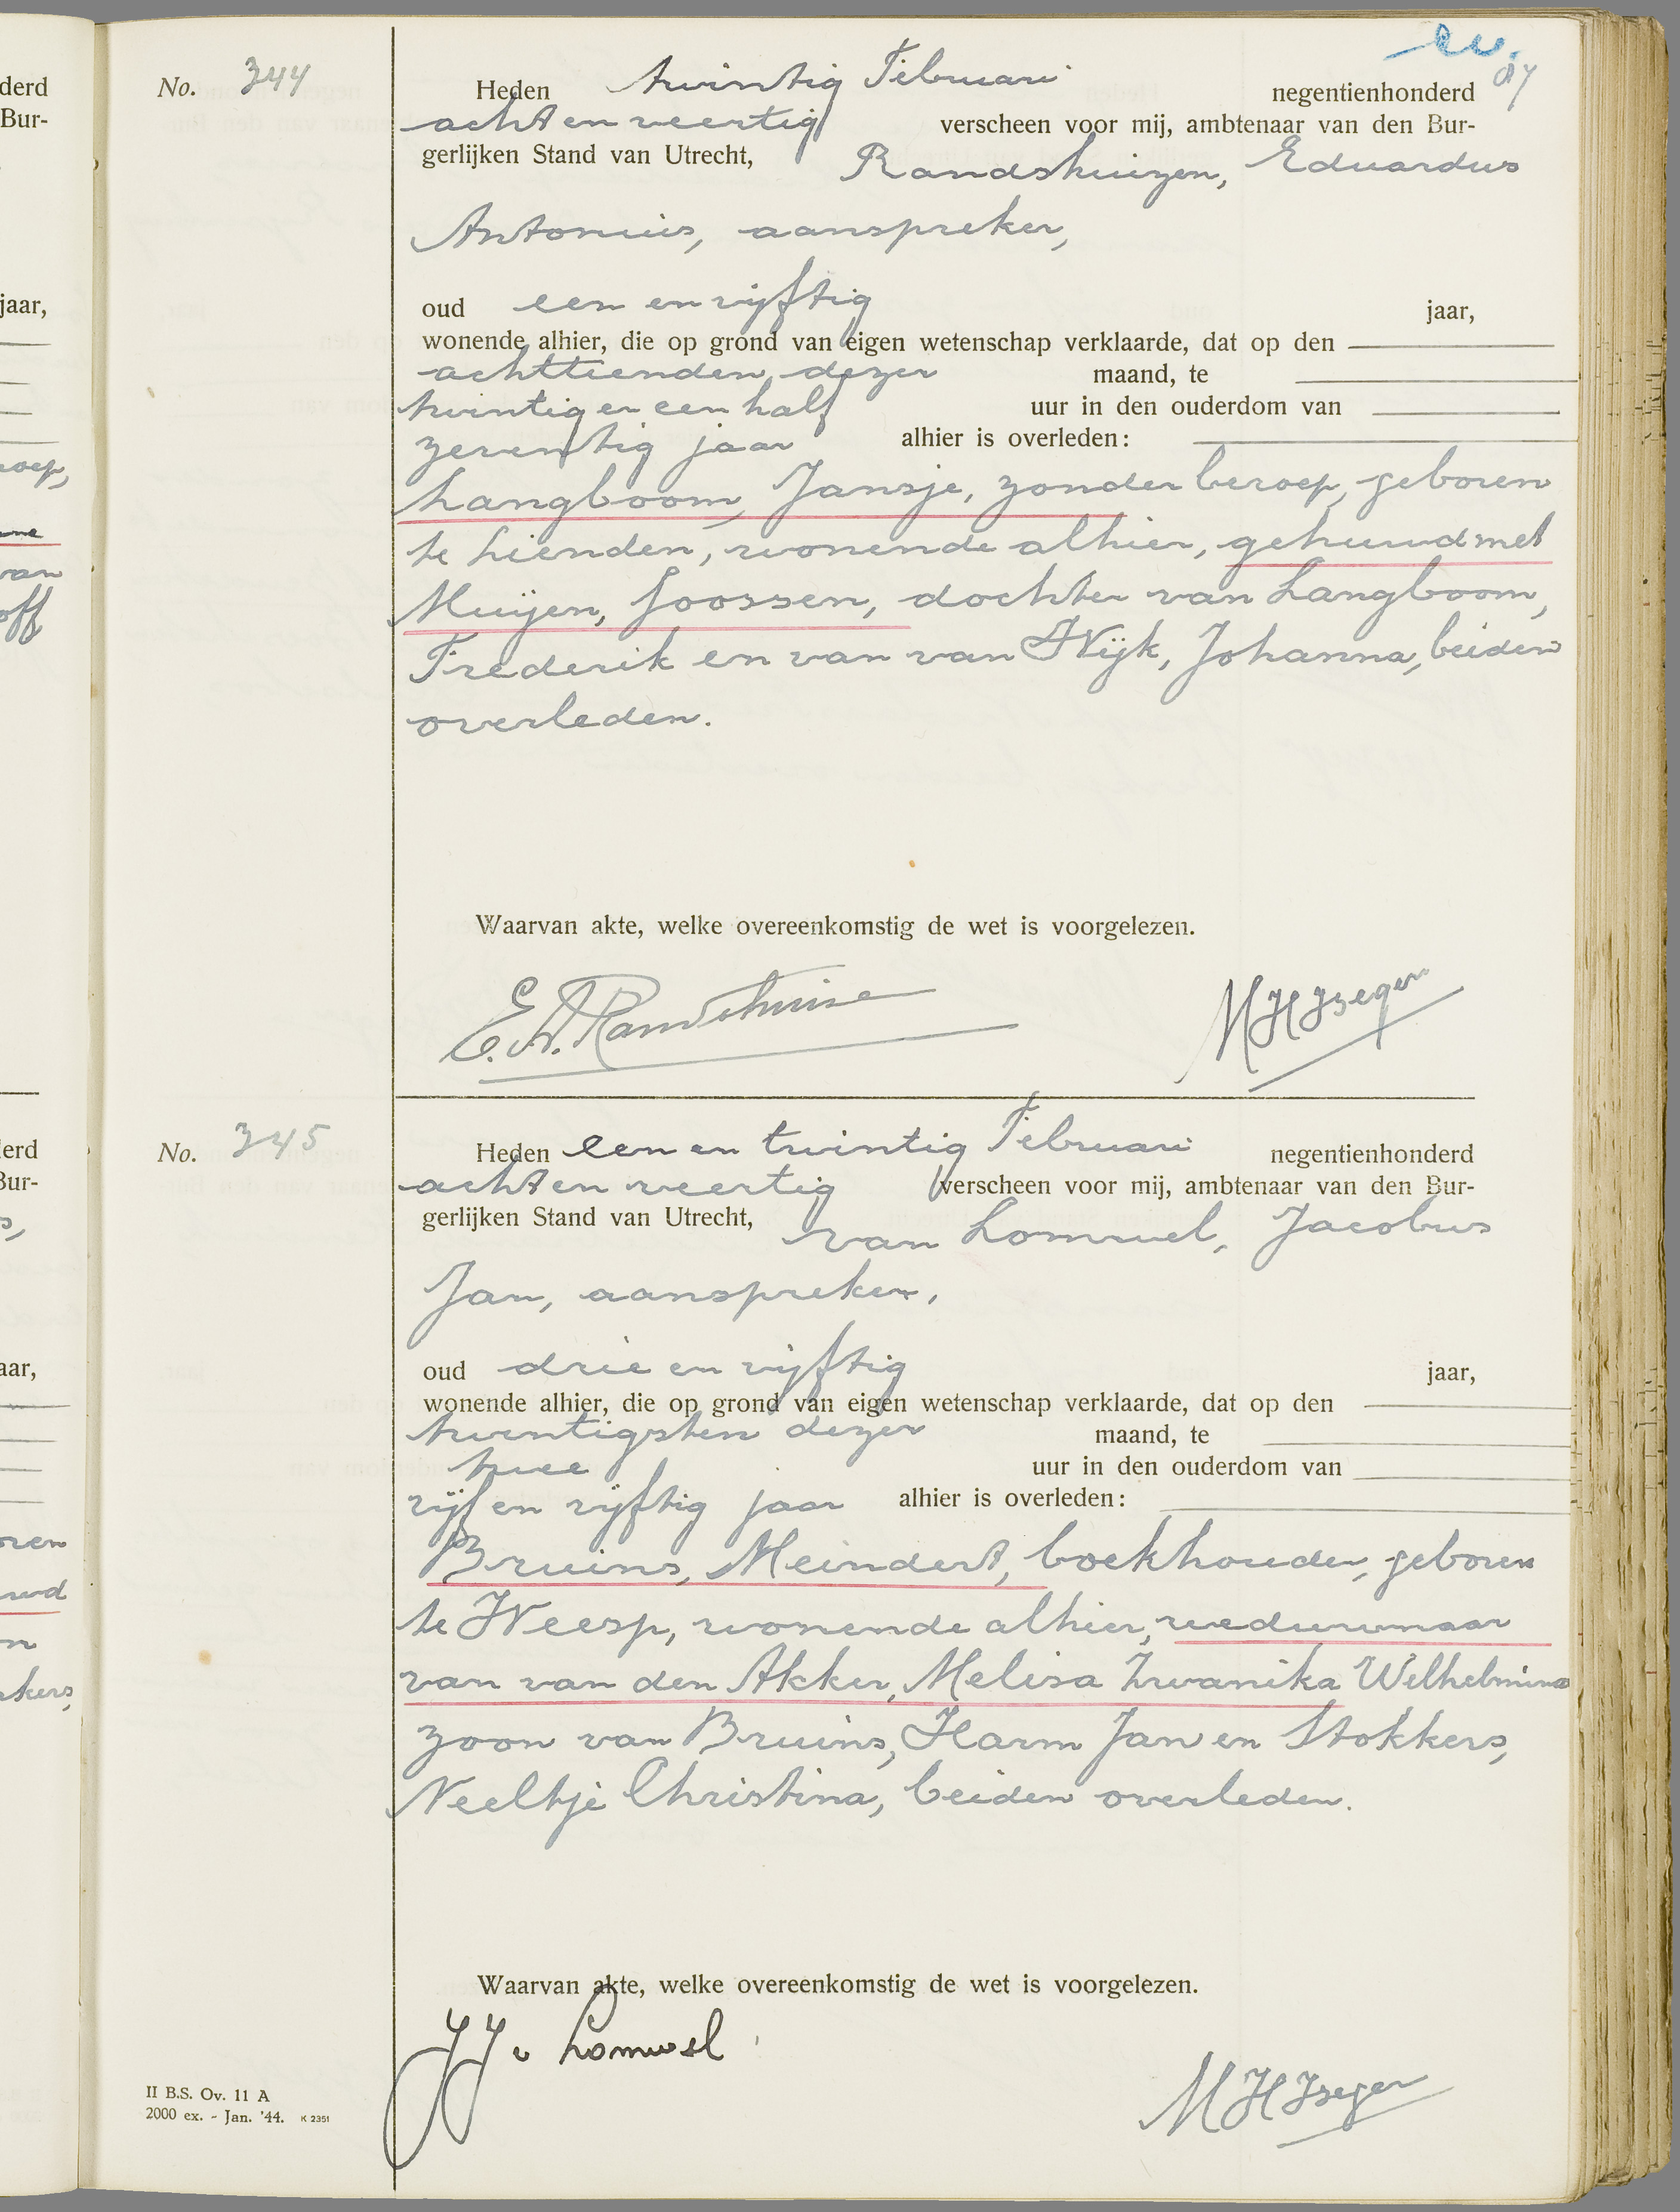 No. 344
Heden twintig Februari negentienhonderd 87
acht en veertig verscheen voor mij, ambtenaar van den Bur-
gerlijken Stand van Utrecht, Randshuizen, Eduardus
Antonius, aanspreker,
oud een en vijftig jaar,
wonende alhier, die op grond van eigen wetenschap verklaarde, dat op den
achttienden dezer maand, te
twintig en een half uur in den ouderdom van
zeventig jaar alhier is overleden:
Langboom, Jansje, zonder beroep, geboren
te Lienden, wonende alhier, gehuwd met
Muijen, Joossen, dochter van Langboom,
Frederik en van van Wijk, Johanna, beiden
overleden.
Waarvan akte, welke overeenkomstig de wet is voorgelezen.
E. A. Randshuise
M H IJzegers
No. 345
Heden een en twintig Februari negentienhonderd
acht en veertig verscheen voor mij, ambtenaar van den Bur-
gerlijken Stand van Utrecht, van Lomwel, Jacobus
Jan, aanspreker,
oud drie en vijftig jaar,
wonende alhier, die op grond van eigen wetenschap verklaarde, dat op den
twintigsten dezer maand, te
twee uur in den ouderdom van
vijf en vijftig jaar alhier is overleden:
Bruins, Meindert, boekhouder, geboren
te Weesp, wonende alhier, weduwnaar
van van den Akker, Melisa Zwanika Wilhelmina
zoon van Bruins, Harm Jan en Stokkers,
Neeltje Christina, beiden overleden.
Waarvan akte, welke overeenkomstig de wet is voorgelezen.
JJ v Lomwel
M H IJzeger
II B.S. Ov. 11 A
2000 ex. - Jan. '44. K 2351
derd
Bur-
jaar,
beroep,
van
off
erd
Bur-
aar,